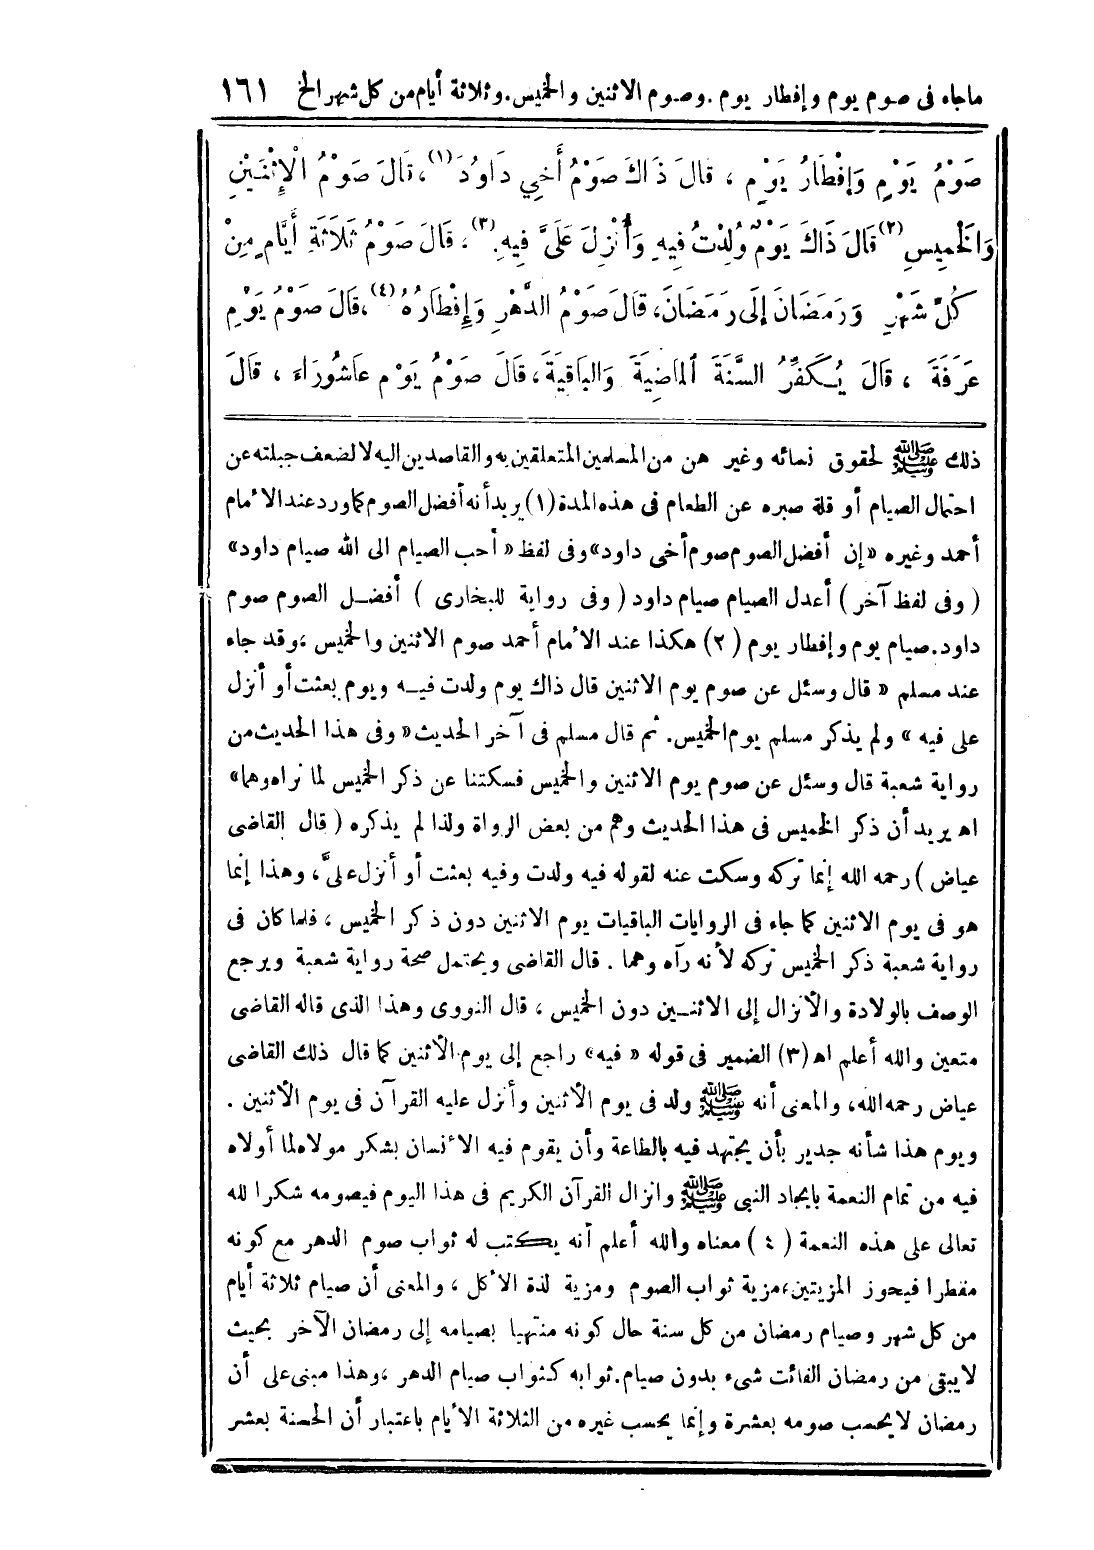 ماجاء فى صوم يوم وإفطار يوم . وصوم الاثنين والخميس . وثلاثة أيام من كل شهر الخ ١٦١
صَوْمُ يَوْمٍ وَإِفْطَارُ يَوْمٍ ، قَالَ ذَاكَ صَوْمُ أَخِي دَاوُدَ (١) ، قَالَ صَوْمُ الْإِثْنَيْنِ
وَالْخَمِيسِ (٢) قَالَ ذَاكَ يَوْمٌ وُلِدْتُ فِيهِ وَأُنْزِلَ عَلَيَّ فِيهِ (٣) ، قَالَ صَوْمُ ثَلَاثَةِ أَيَّامٍ مِنْ
كُلِّ شَهْرٍ وَرَمَضَانَ إِلَى رَمَضَانَ ، قَالَ صَوْمُ الدَّهْرِ وَإِفْطَارُهُ (٤) ، قَالَ صَوْمُ يَوْمِ
عَرَفَةَ ، قَالَ يُكَفِّرُ السَّنَةَ الْمَاضِيَةَ وَالْبَاقِيَةَ ، قَالَ صَوْمُ يَوْمِ عَاشُورَاءَ ، قَالَ
ذلك ﷺ لحقوق نسائه وغير هن من المسلمين المتعلقين به والقاصدين اليه لا لضعف جبلته عن
احتمال الصيام أو قلة صبره عن الطعام فى هذه المدة (١) يريد أنه أفضل الصوم كما ورد عند الأمام
أحمد وغيره « إن أفضل الصوم صوم أخى داود » وفى لفظ « أحب الصيام الى الله صيام داود »
( وفى لفظ آخر ) أعدل الصيام صيام داود ( وفى رواية للبخارى ) أفضل الصوم صوم
داود . صيام يوم وإفطار يوم (٢) هكذا عند الأمام أحمد صوم الاثنين والخميس ، وقد جاء
عند مسلم « قال وسئل عن صوم يوم الاثنين قال ذاك يوم ولدت فيه ويوم بعثت أو أنزل
على فيه » ولم يذكر مسلم يوم الخميس . ثم قال مسلم فى آخر الحديث « وفى هذا الحديث من
رواية شعبة قال وسئل عن صوم يوم الاثنين والخميس فسكتنا عن ذكر الخميس لما نراه وهما »
اه يريد أن ذكر الخميس فى هذا الحديث وهم من بعض الرواة ولذا لم يذكره ( قال القاضى
عياض ) رحمه الله إنما تركه وسكت عنه لقوله فيه ولدت وفيه بعثت أو أنزل علىَّ ، وهذا إنما
هو فى يوم الاثنين كما جاء فى الروايات الباقيات يوم الاثنين دون ذكر الخميس ، فلما كان فى
رواية شعبة ذكر الخميس تركه لأنه رآه وهما . قال القاضى ويحتمل صحة رواية شعبة ويرجع
الوصف بالولادة والأنزال إلى الاثنين دون الخميس ، قال النووى وهذا الذى قاله القاضى
متعين والله أعلم اه (٣) الضمير فى قوله « فيه » راجع إلى يوم الأثنين كما قال ذلك القاضى
عياض رحمه الله ، والمعنى أنه ﷺ ولد فى يوم الأثنين وأنزل عليه القرآن فى يوم الأثنين .
ويوم هذا شأنه جدير بأن يجتهد فيه بالطاعة وأن يقوم فيه الأنسان بشكر مولاه لما أولاه
فيه من تمام النعمة بايجاد النبى ﷺ وانزال القرآن الكريم فى هذا اليوم فيصومه شكرا لله
تعالى على هذه النعمة (٤) معناه والله أعلم أنه يكتب له ثواب صوم الدهر مع كونه
مفطرا فيحوز المزيتين ، مزية ثواب الصوم ومزية لذة الأكل ، والمعنى أن صيام ثلاثة أيام
من كل شهر وصيام رمضان من كل سنة حال كونه منتهيا بصيامه إلى رمضان الآخر بحيث
لا يبقى من رمضان الفائت شىء بدون صيام . ثوابه كثواب صيام الدهر ، وهذا مبنى على أن
رمضان لا يحسب صومه بعشرة وإنما يحسب غيره من الثلاثة الأيام باعتبار أن الحسنة بعشر